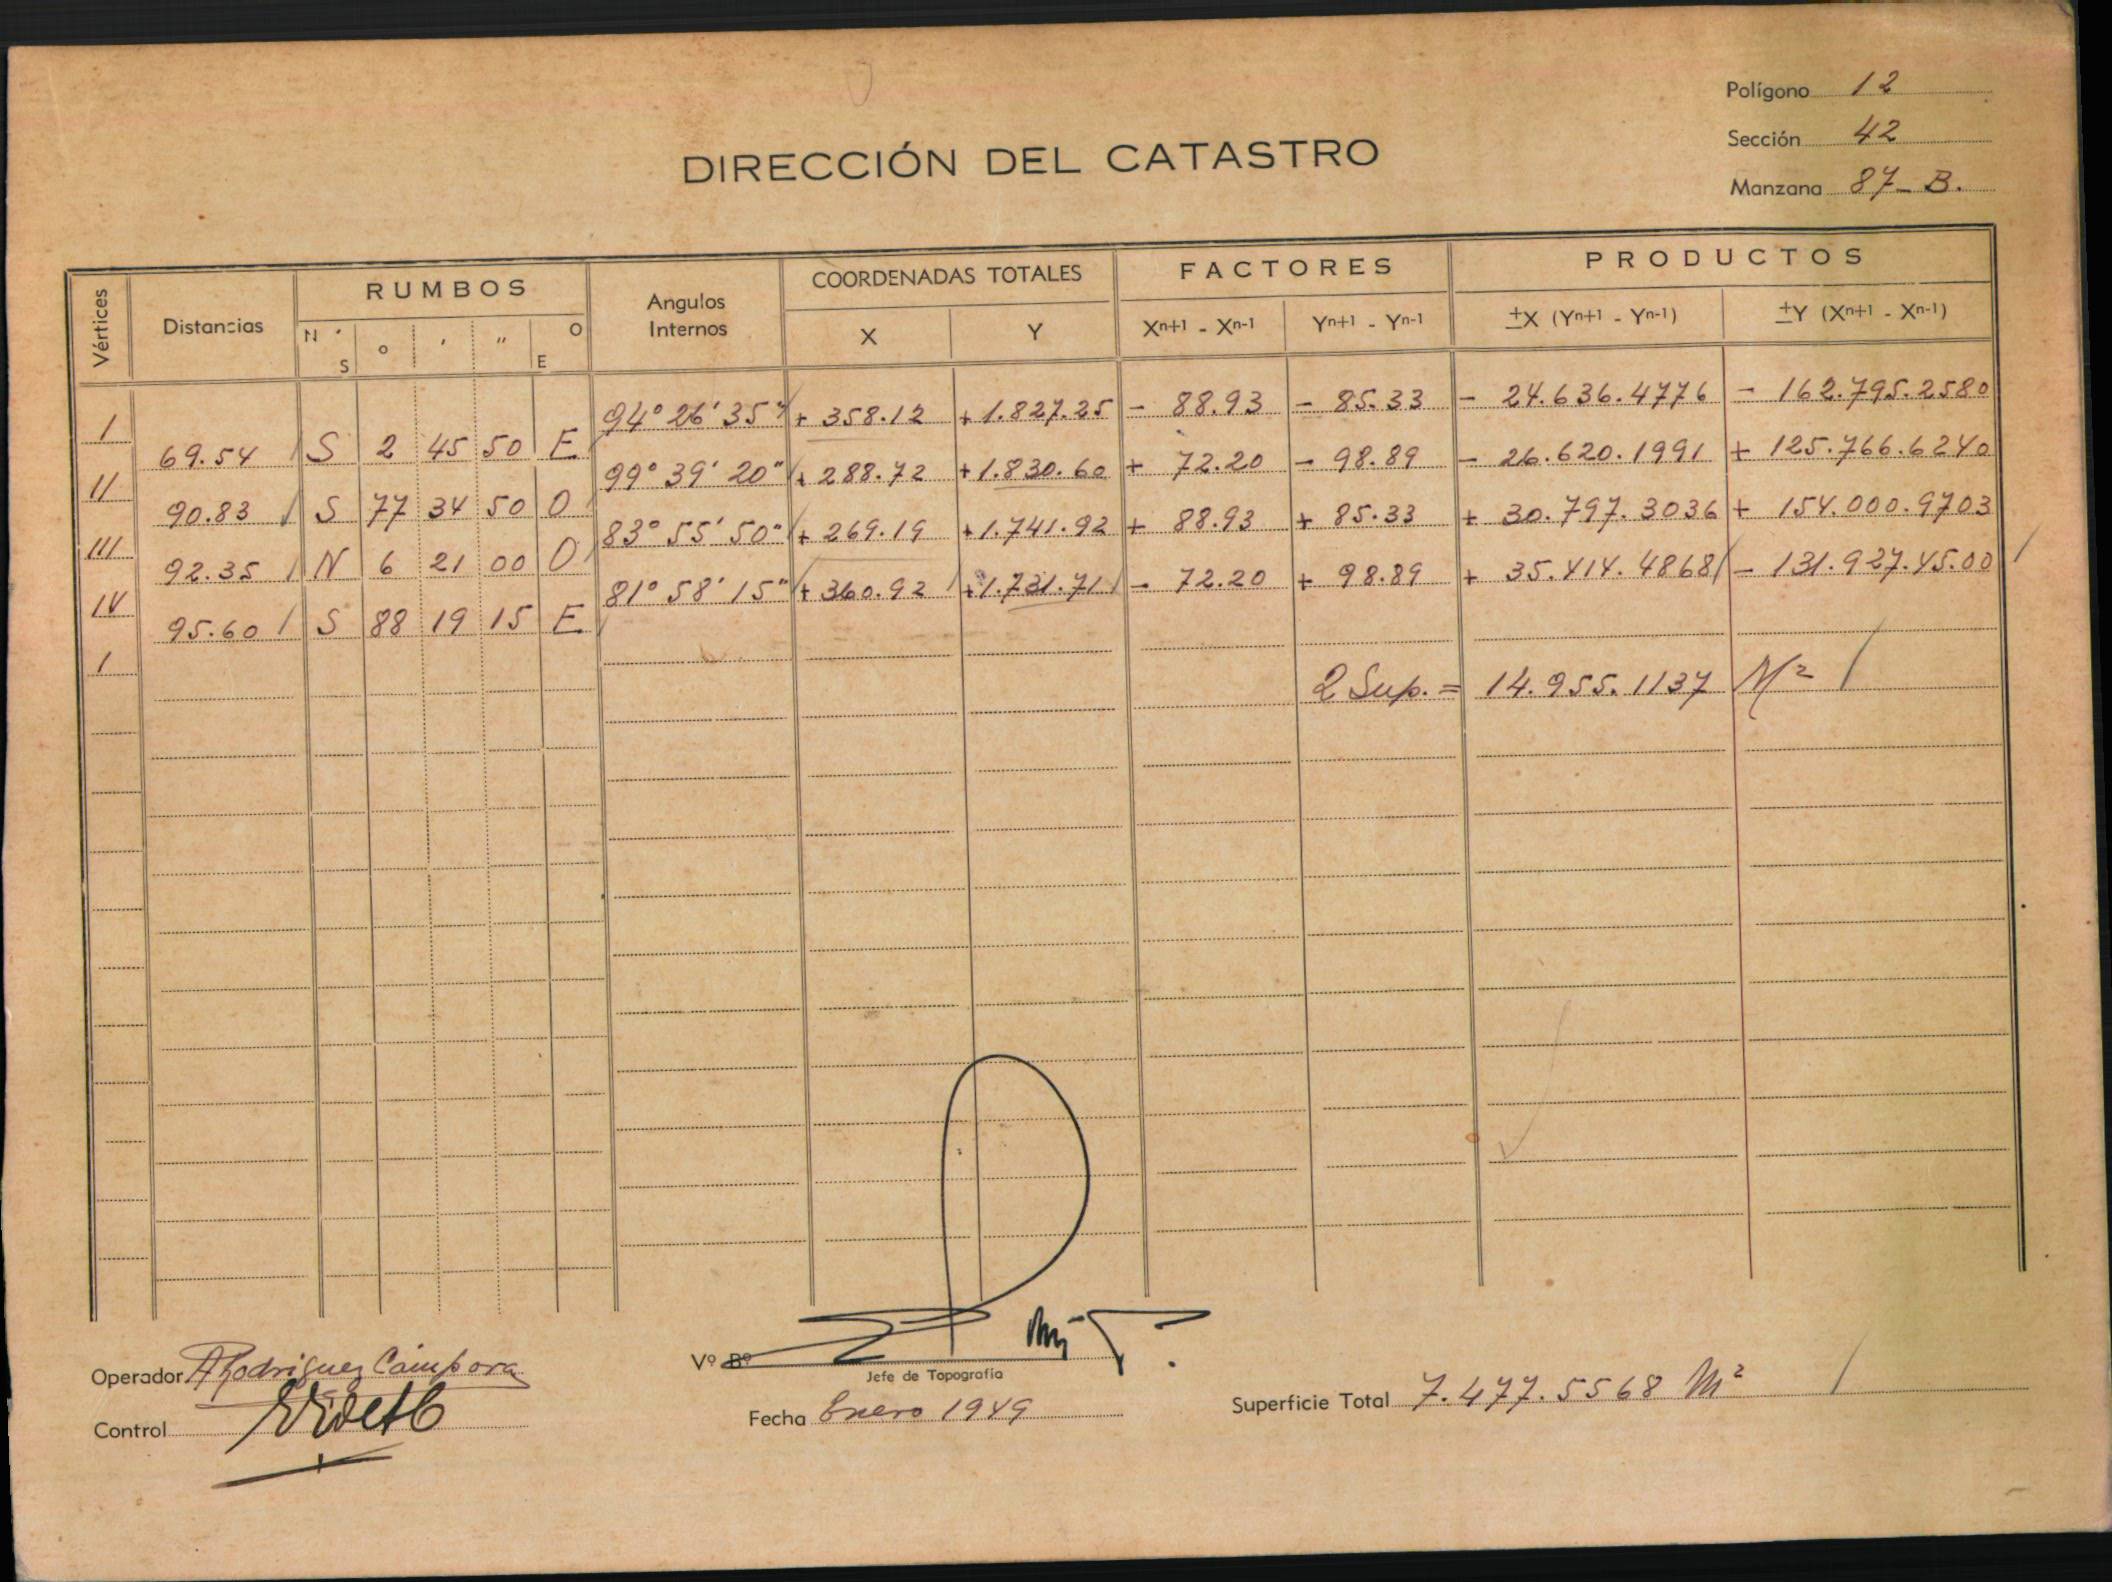 Polígono 12
Sección 42
Manzana 87-B.
DIRECCIÓN DEL CATASTRO
Vértices Distancias RUMBOS Angulos Internos COORDENADAS TOTALES FACTORES PRODUCTOS
N S ° ' " O E X Y Xn+1 - Xn-1 Yn+1 - Yn-1 ±X (Yn+1 - Yn-1) ±Y (Xn+1 - Xn-1)
I 94° 26' 35" + 358.12 + 1.827.25 - 88.93 - 85.33 - 24.636.4776 - 162.795.2580
69.54 S 2 45 50 E
II 99° 39' 20" + 288.72 + 1.830.60 + 72.20 - 98.89 - 26.620.1991 + 125.766.6240
90.83 S 77 34 50 O
III 83° 55' 50" + 269.19 + 1.741.92 + 88.93 + 85.33 + 30.797.3036 + 154.000.9703
92.35 N 6 21 00 O
IV 81° 58' 15" + 360.92 + 1.731.71 - 72.20 + 98.89 + 35.414.4868 - 131.927.45.00
95.60 S 88 19 15 E
I
2 Sup. = 14.955.1137 M²
Operador A Rodriguez Cámpora
Vº Bº
Jefe de Topografía
Control
Fecha Enero 1949
Superficie Total 7.477.5568 M²